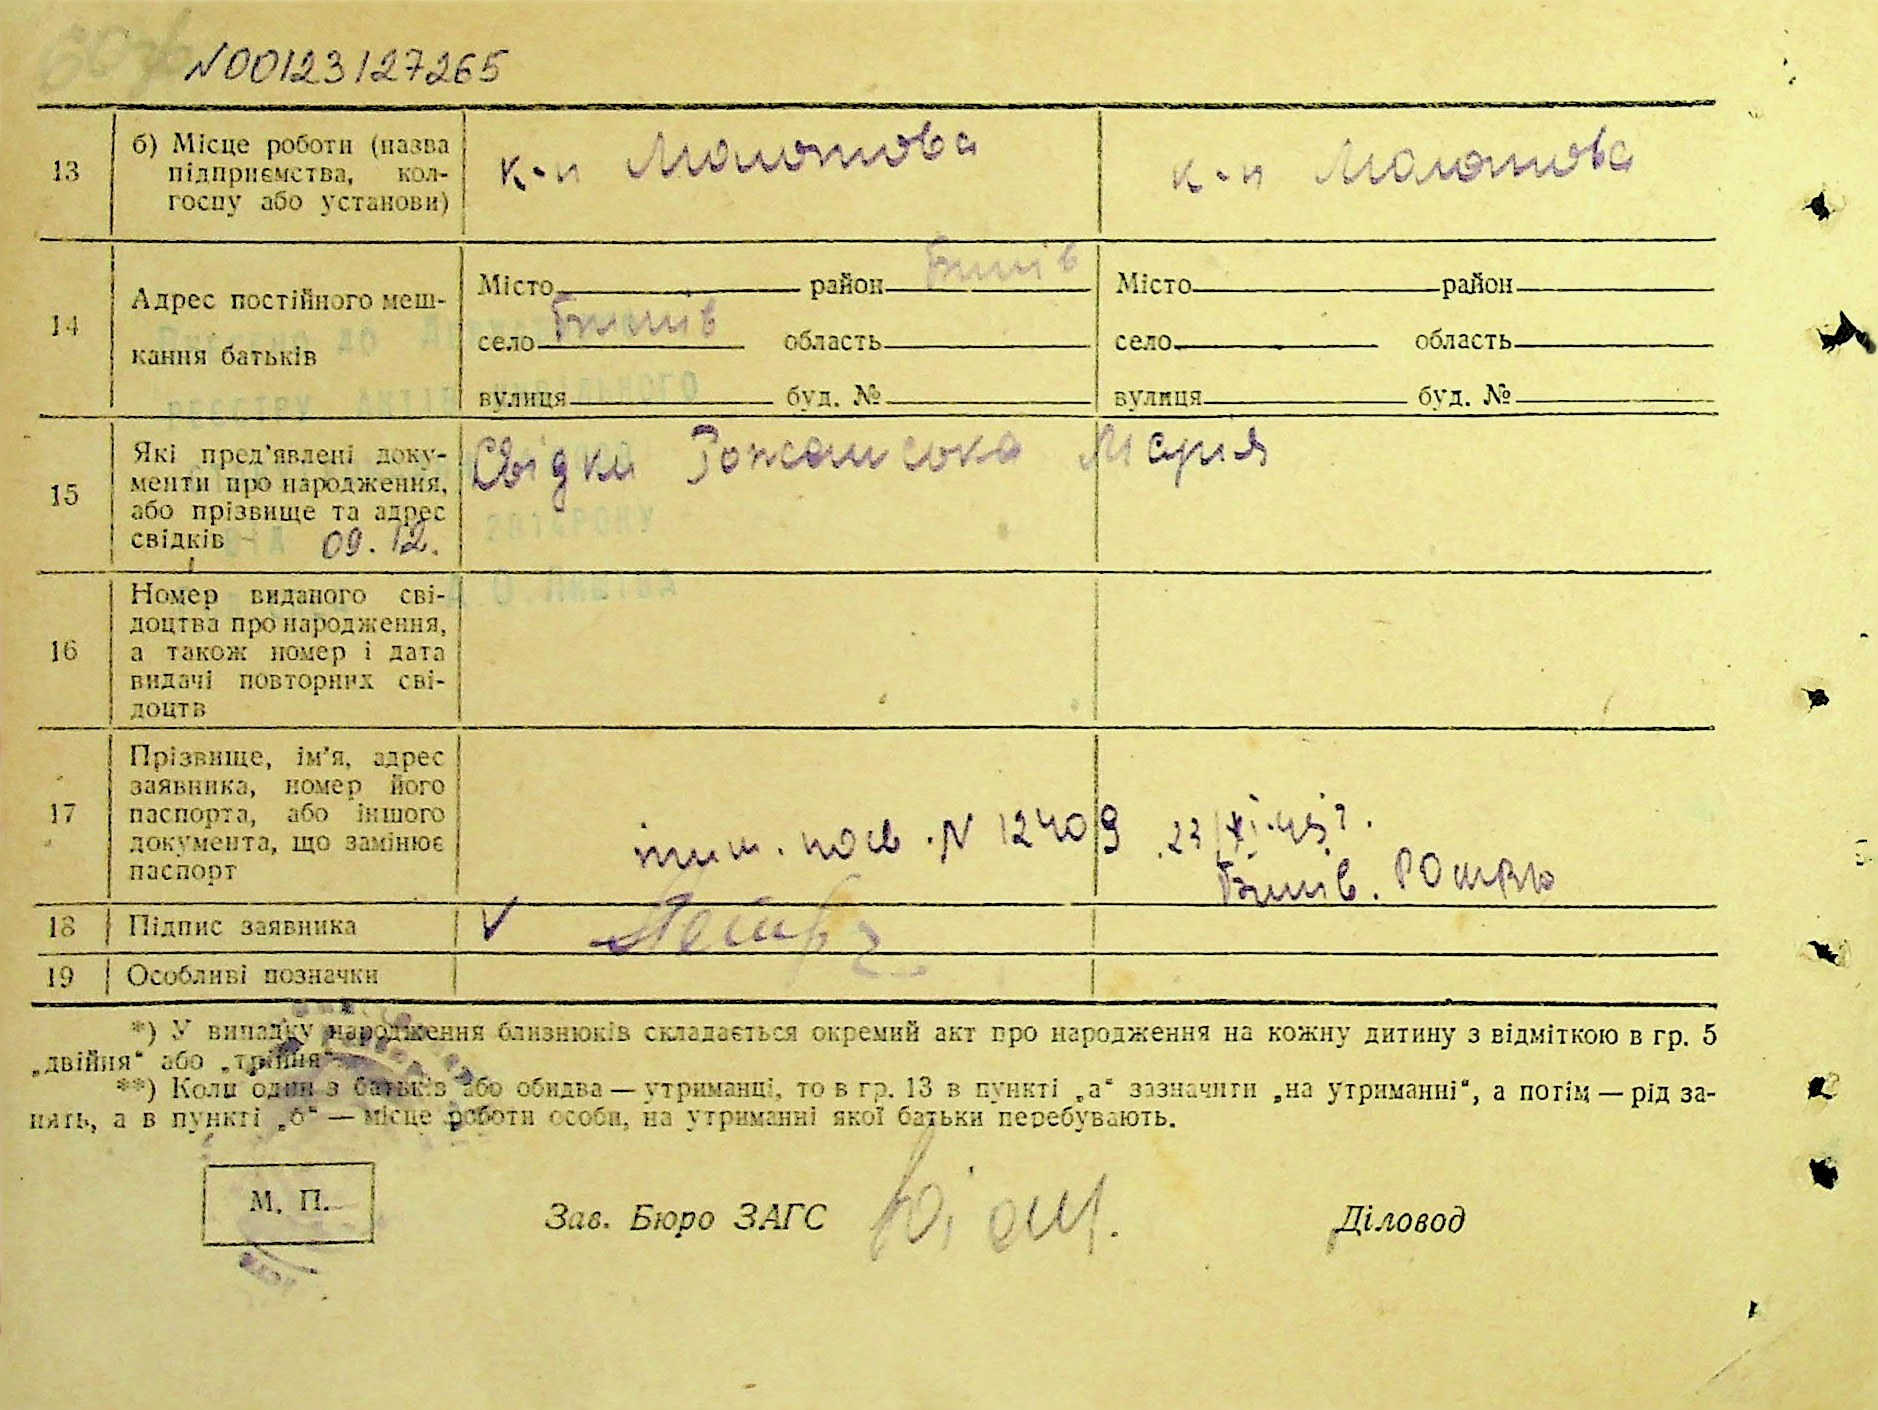 N00123127265
13
б) Місце роботи (назва підприємства, колгоспу або установи)
к-п Молотова
к-п Молотова
14
Адрес постійного мешкання батьків
Місто район Бишів
село Бишів область
вулиця буд. №
Місто район
село область
вулиця буд. №
15
Які пред'явлені документи про народження, або прізвище та адрес свідків
09.12.
Свідки Марія
16
Номер виданого свідоцтва про народження, а також номер і дата видачі повторних свідоцтв
17
Прізвище, ім'я, адрес заявника, номер його паспорта, або іншого документа, що замінює паспорт
тим. посв. N 12409
Бишів.
18
Підпис заявника
19
Особливі позначки
*) У випадку народження близнюків складається окремий акт про народження на кожну дитину з відміткою в гр. 5
„двійня“ або „трійня“.
**) Коли один з батьків або обидва — утриманці, то в гр. 13 в пункті „а“ зазначити „на утриманні“, а потім — рід за-
нять, а в пункті „б“ — місце роботи особи, на утриманні якої батьки перебувають.
М. П.
Зав. Бюро ЗАГС
Діловод